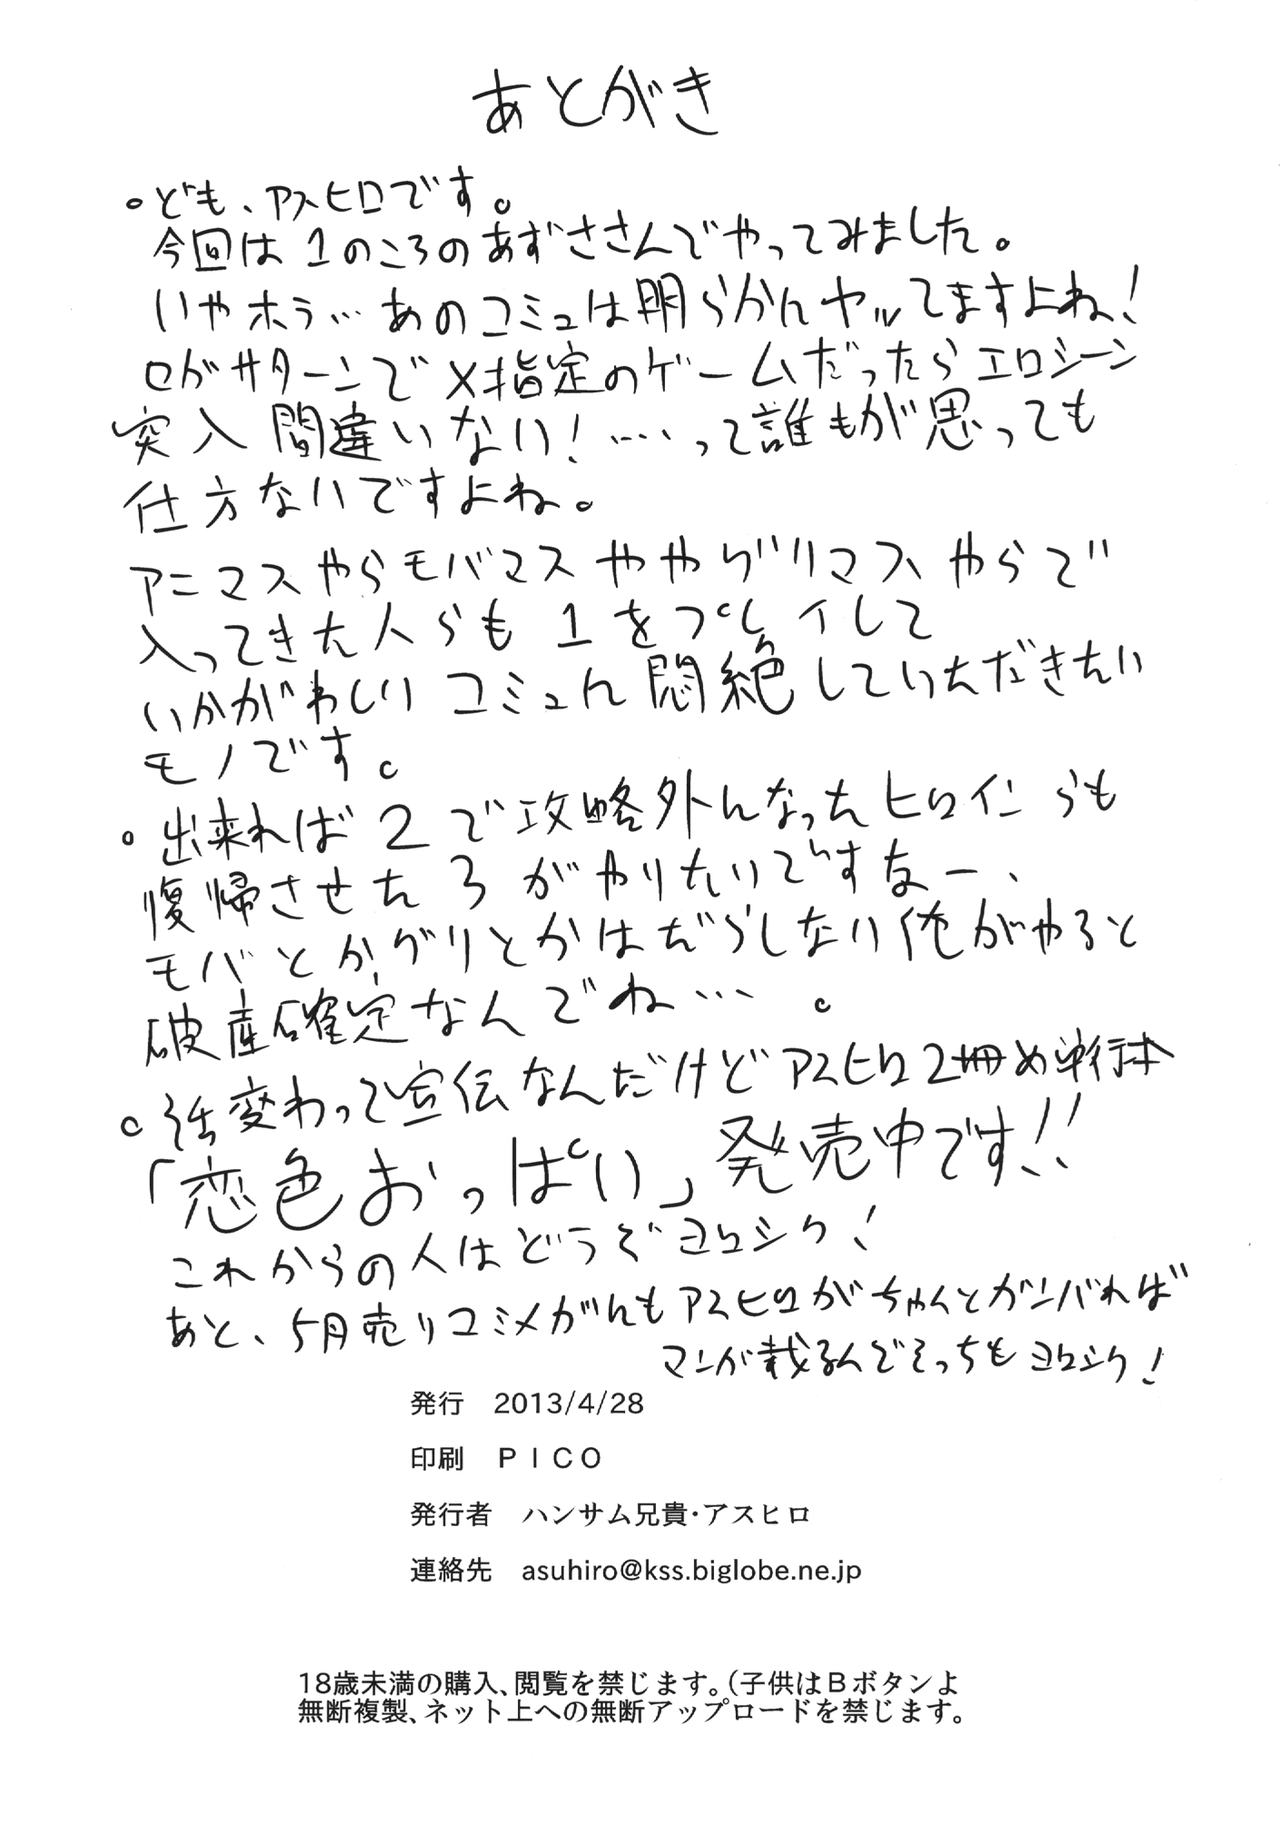 あとがき
・ども、アスヒロです。
今回は1のころのあずささんでやってみました。
いやホラ…あのコミュは明らかにヤッてますよね!
セガサターンでX指定のゲームだったらエロシーン
突入間違いない!……って誰もが思っても
仕方ないですよね。
アニマスやらモバマスややグリマスやらで
入ってきた人らも1をプレイして
いかがわしいコミュに悶絶していただきたい
モノです。
・出来れば2で攻略外になったヒロインらも
復帰させた3がやりたいですなー、
モバとかグリとかはだらしない俺がやると
破産確定なんでね…。
・話変わって宣伝なんだけどアスヒロ2冊め単行本
「恋色おっぱい」発売中です!!
これからの人はどうぞヨロシク!
あと、5月売りコミメガにもアスヒロがちゃんとガンバれば
マンガ載るんでそっちもヨロシク!
発行 2013/4/28
印刷 PICO
発行者 ハンサム兄貴・アスヒロ
連絡先 asuhiro@kss.biglobe.ne.jp
18歳未満の購入、閲覧を禁じます。(子供はBボタンよ
無断複製、ネット上への無断アップロードを禁じます。